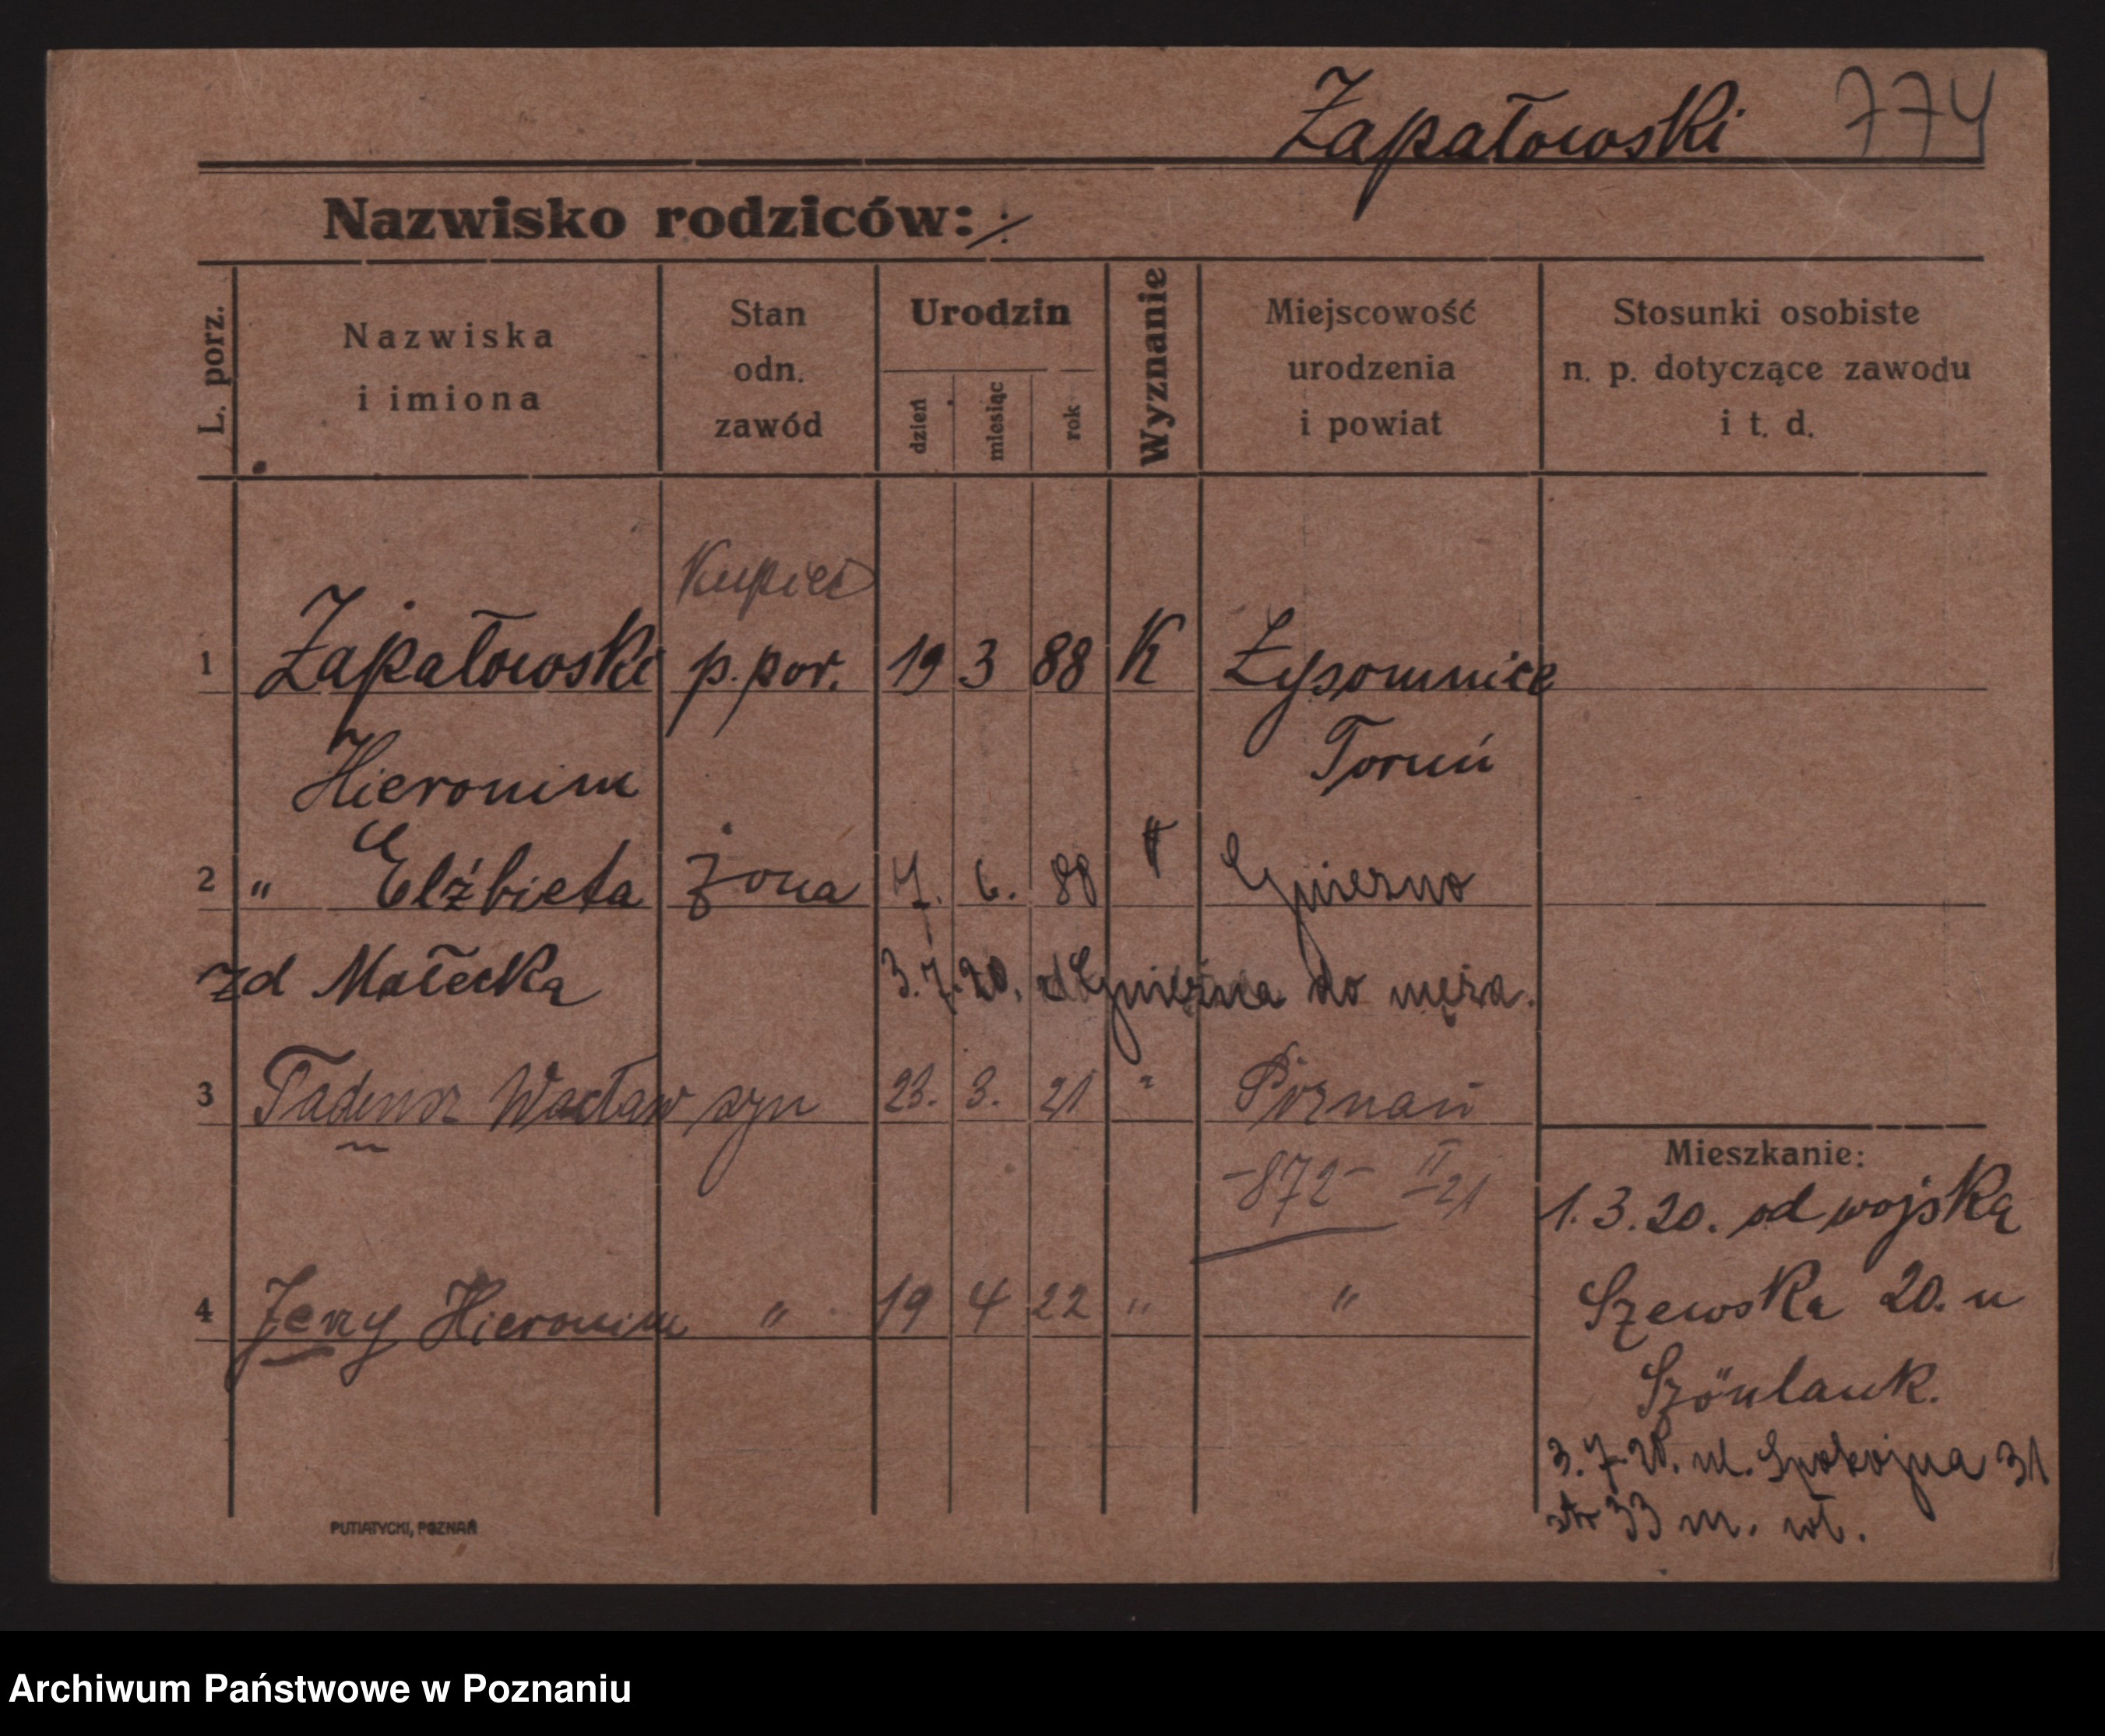 Zapałowski 774
Nazwisko rodziców: ·/·
L. porz.
Nazwiska
i imiona
Stan
odn.
zawód
Urodzin
dzień
miesiąc
rok
Wyznanie
Miejscowość
urodzenia
i powiat
Stosunki osobiste
n. p. dotyczące zawodu
i t. d.
Kupiec
1 Zapałowski p.por. 19 3 88 K Łysomnice
Hieronim Toruń
2 " Elżbieta żona 7. 6. 88 K Gniezno
zd Małecka 3.7.20. od Gniezna do męża.
3 Tadeusz Wacław syn 23. 3. 21 " Poznań
-872- II 21
4 Jerzy Hieronim " 19 4 22 " "
Mieszkanie:
1.3.20. od wojska
Szewska 20. u
Szönlank.
3.7.20. ul. Spokojna 31
33 m. wł.
PUTIATYCKI, POZNAŃ
Archiwum Państwowe w Poznaniu